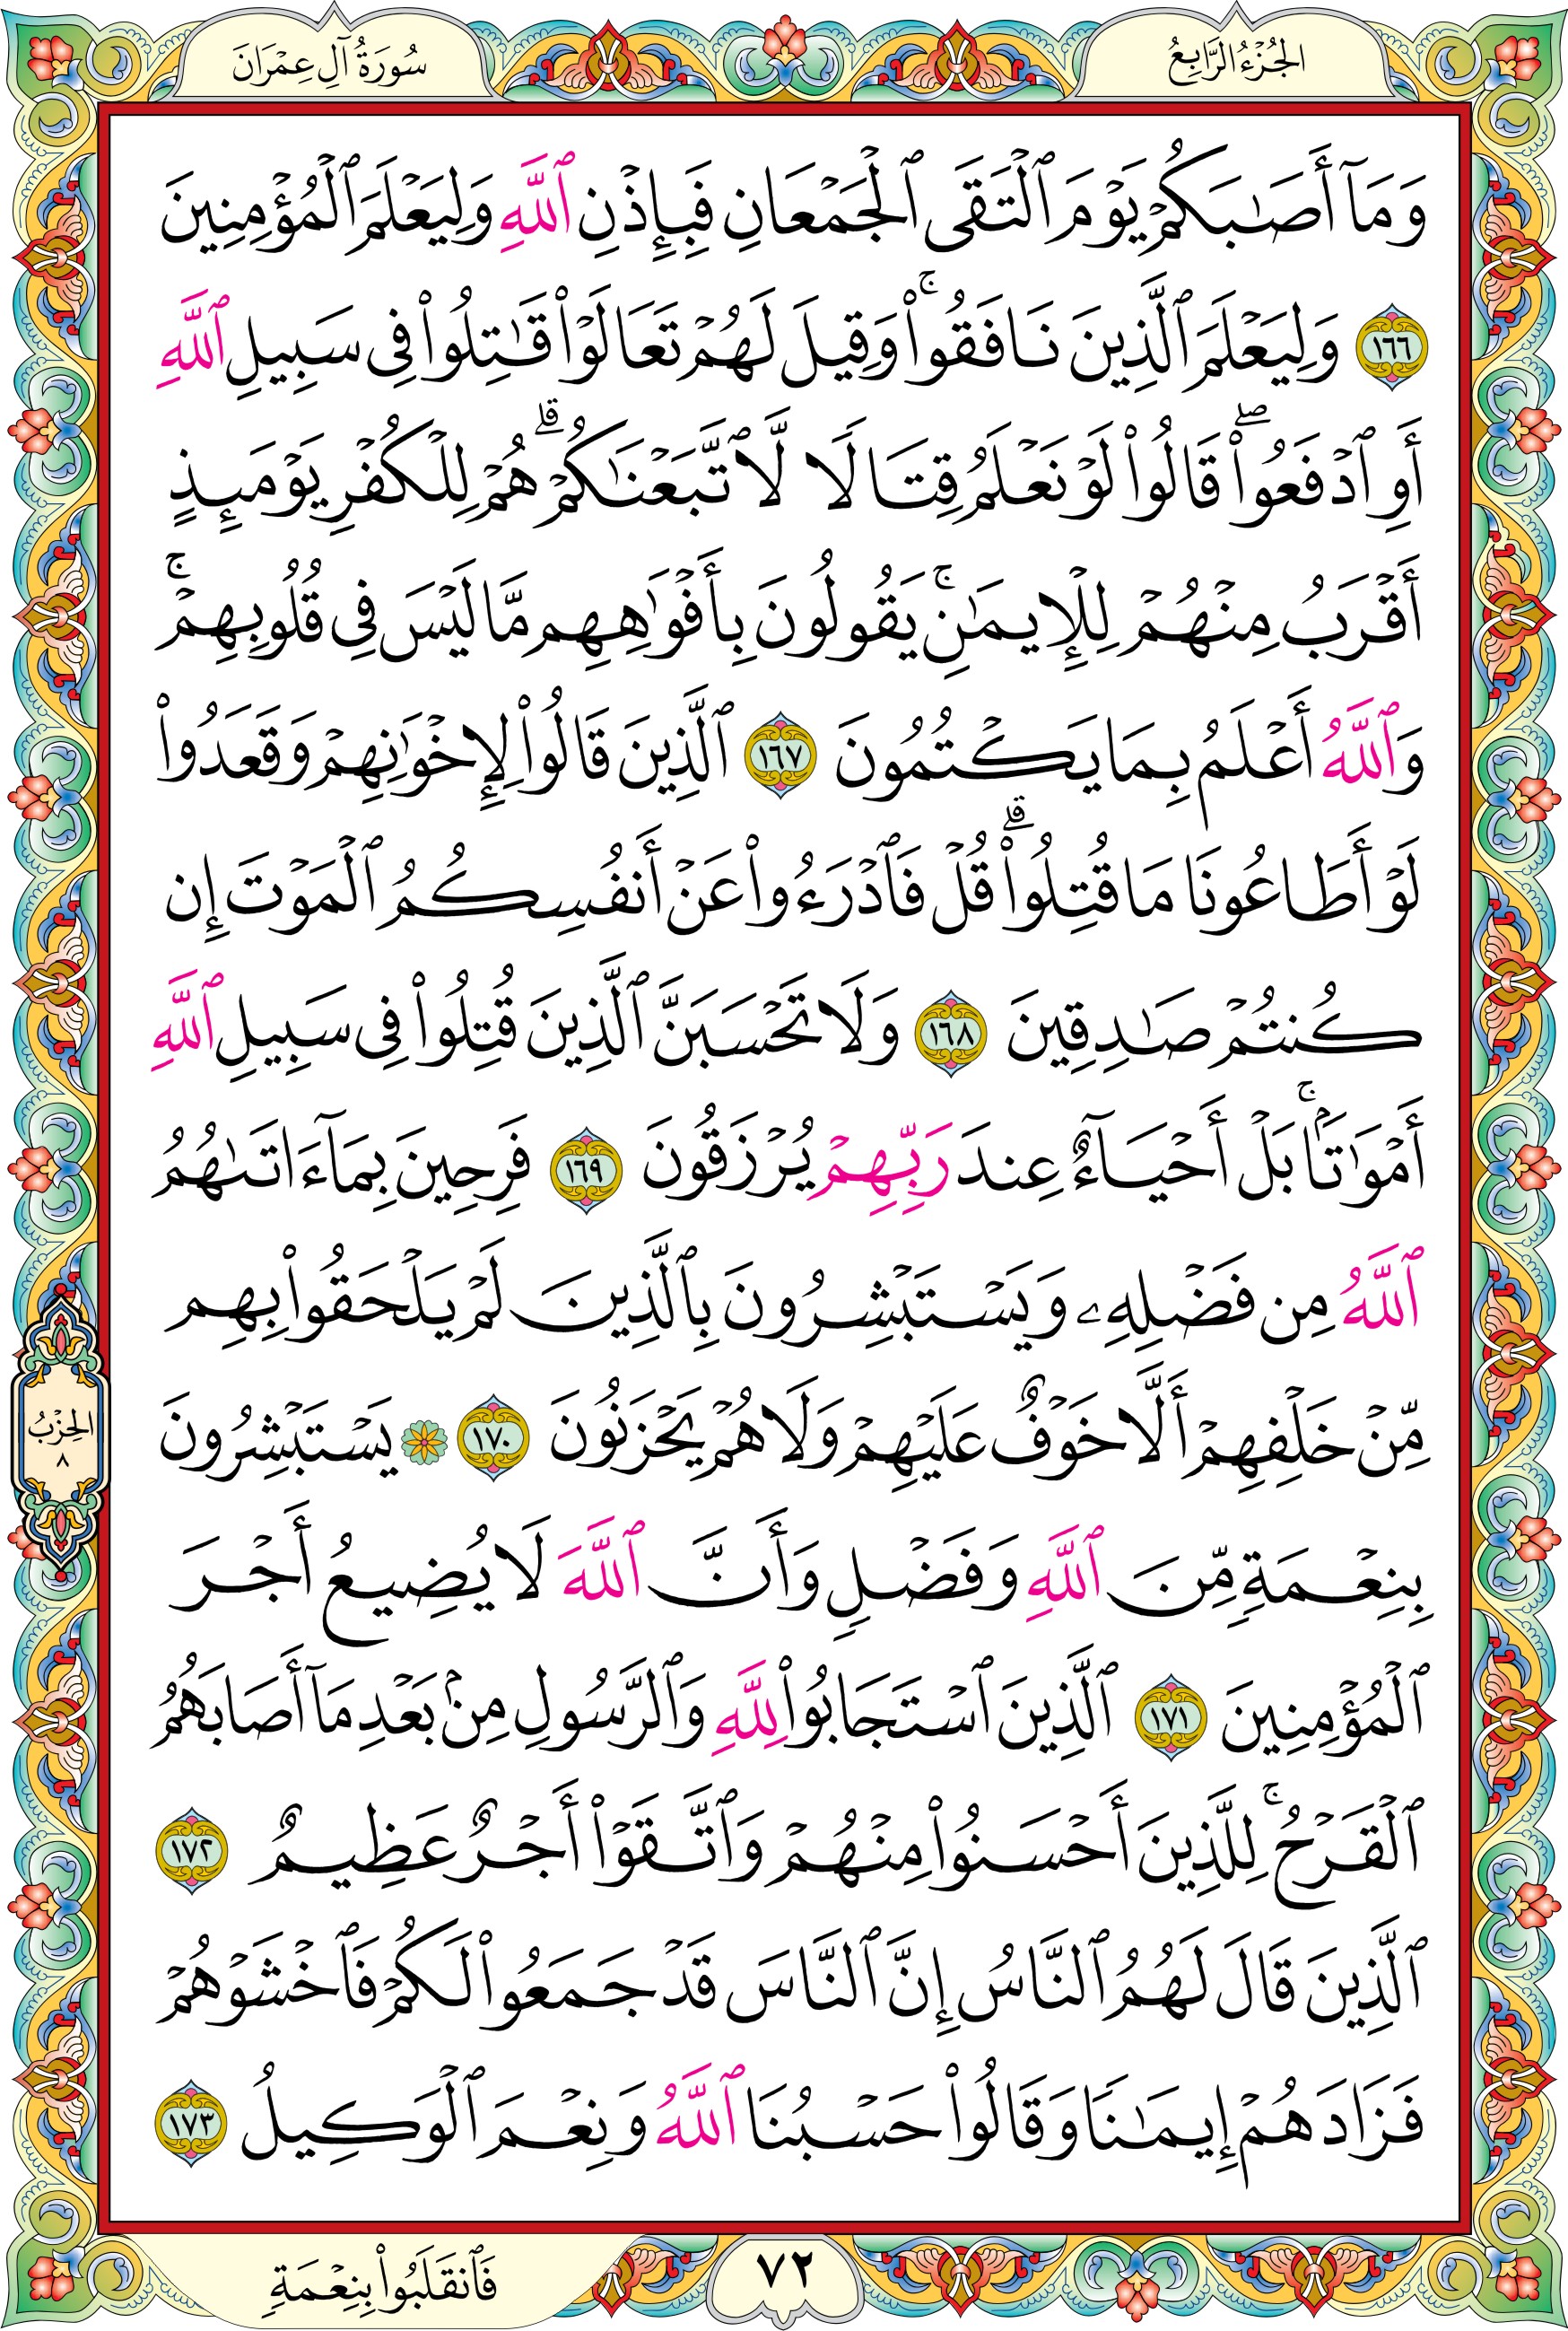 الجُزْءُ الرَّابِعُ
سُورَةُ آلِ عِمْرَانَ
وَمَآ أَصَٰبَكُمْ يَوْمَ ٱلْتَقَى ٱلْجَمْعَانِ فَبِإِذْنِ ٱللَّهِ وَلِيَعْلَمَ ٱلْمُؤْمِنِينَ
١٦٦ وَلِيَعْلَمَ ٱلَّذِينَ نَافَقُوا۟ ۚ وَقِيلَ لَهُمْ تَعَالَوْا۟ قَٰتِلُوا۟ فِى سَبِيلِ ٱللَّهِ
أَوِ ٱدْفَعُوا۟ ۖ قَالُوا۟ لَوْ نَعْلَمُ قِتَالًا لَّٱتَّبَعْنَٰكُمْ ۗ هُمْ لِلْكُفْرِ يَوْمَئِذٍ
أَقْرَبُ مِنْهُمْ لِلْإِيمَٰنِ ۚ يَقُولُونَ بِأَفْوَٰهِهِم مَّا لَيْسَ فِى قُلُوبِهِمْ ۚ
وَٱللَّهُ أَعْلَمُ بِمَا يَكْتُمُونَ ١٦٧ ٱلَّذِينَ قَالُوا۟ لِإِخْوَٰنِهِمْ وَقَعَدُوا۟
لَوْ أَطَاعُونَا مَا قُتِلُوا۟ ۗ قُلْ فَٱدْرَءُوا۟ عَنْ أَنفُسِكُمُ ٱلْمَوْتَ إِن
كُنتُمْ صَٰدِقِينَ ١٦٨ وَلَا تَحْسَبَنَّ ٱلَّذِينَ قُتِلُوا۟ فِى سَبِيلِ ٱللَّهِ
أَمْوَٰتًۢا ۚ بَلْ أَحْيَآءٌ عِندَ رَبِّهِمْ يُرْزَقُونَ ١٦٩ فَرِحِينَ بِمَآ ءَاتَىٰهُمُ
ٱللَّهُ مِن فَضْلِهِۦ وَيَسْتَبْشِرُونَ بِٱلَّذِينَ لَمْ يَلْحَقُوا۟ بِهِم
مِّنْ خَلْفِهِمْ أَلَّا خَوْفٌ عَلَيْهِمْ وَلَا هُمْ يَحْزَنُونَ ١٧٠ ۞ يَسْتَبْشِرُونَ
بِنِعْمَةٍ مِّنَ ٱللَّهِ وَفَضْلٍ وَأَنَّ ٱللَّهَ لَا يُضِيعُ أَجْرَ
ٱلْمُؤْمِنِينَ ١٧١ ٱلَّذِينَ ٱسْتَجَابُوا۟ لِلَّهِ وَٱلرَّسُولِ مِنۢ بَعْدِ مَآ أَصَابَهُمُ
ٱلْقَرْحُ ۚ لِلَّذِينَ أَحْسَنُوا۟ مِنْهُمْ وَٱتَّقَوْا۟ أَجْرٌ عَظِيمٌ ١٧٢
ٱلَّذِينَ قَالَ لَهُمُ ٱلنَّاسُ إِنَّ ٱلنَّاسَ قَدْ جَمَعُوا۟ لَكُمْ فَٱخْشَوْهُمْ
فَزَادَهُمْ إِيمَٰنًا وَقَالُوا۟ حَسْبُنَا ٱللَّهُ وَنِعْمَ ٱلْوَكِيلُ ١٧٣
الحِزْبُ
٨
٧٢
فَٱنقَلَبُوا۟ بِنِعْمَةٍ